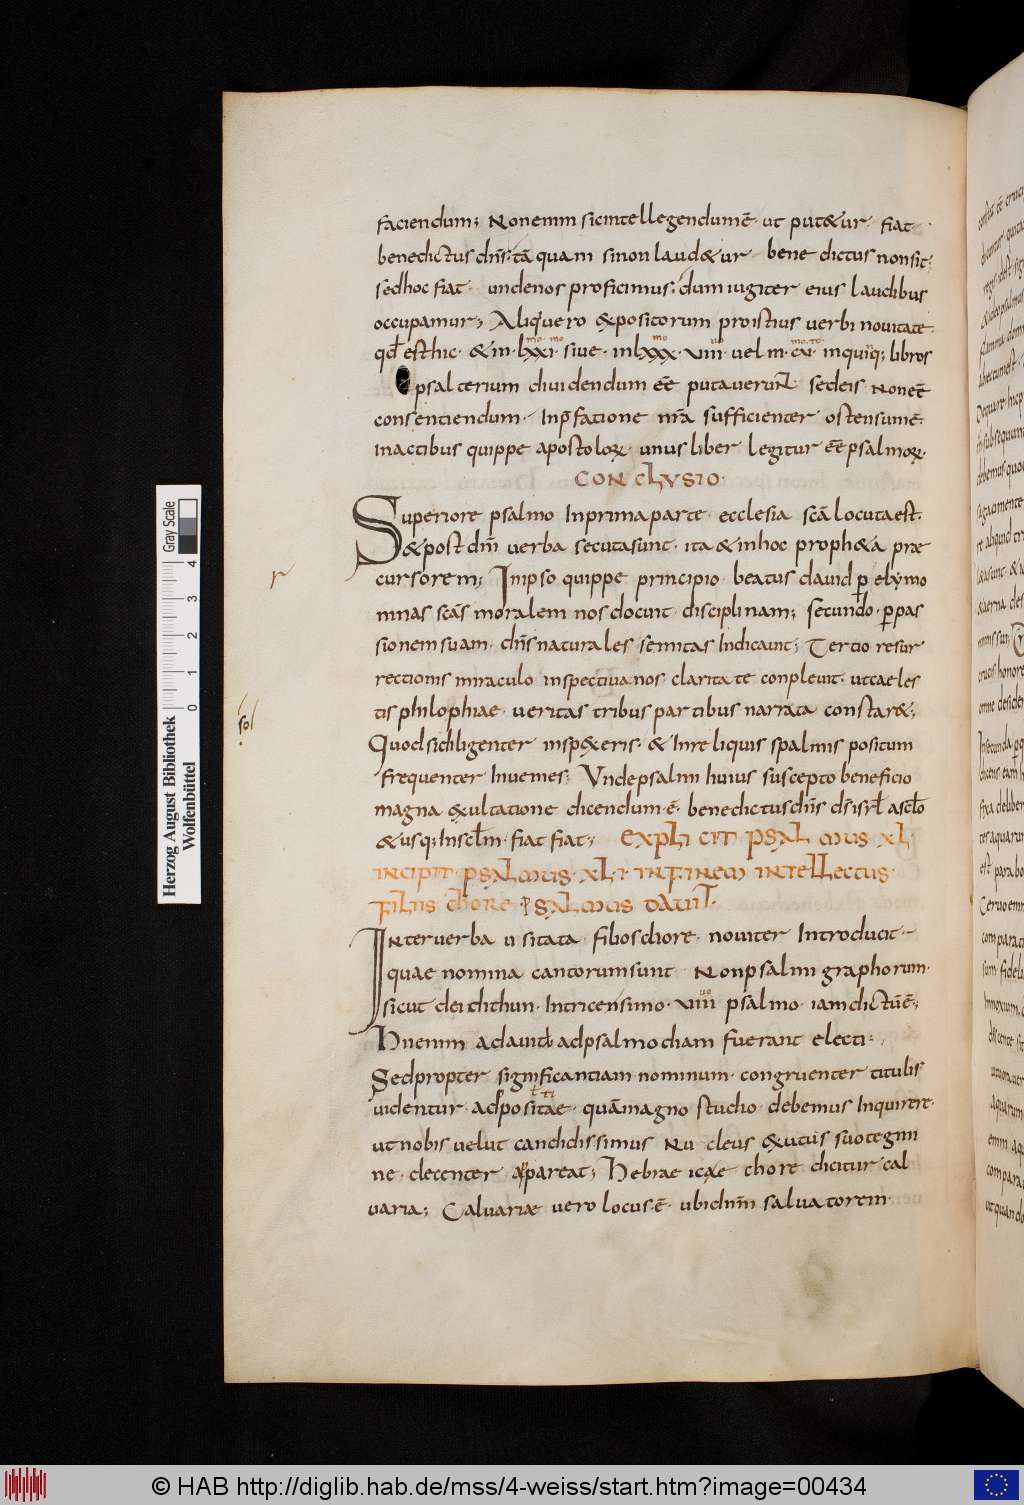 faciendum; Non enim sic intellegendum ē· ut putetur· fiat·
benedictus dn̄s· tā quam si non laudetur· benedictus non sit;
sed hoc fiat· unde nos proficimus· dum iugiter eius laudibus
occupamur; Aliqui uero expositorum pro istius uerbi nouitate·
qđ est hic· & in· lxxi·mo· siue· in lxxx·mo· viii·uo· uel in· cvi· in quinq; libros
psalterium diuidendum eē putauerunt· sed eis non ē
consentiendum· In p̄fatione nr̄a sufficienter ostensum ē·
in actibus quippe apostoloꝝ· unus liber legitur eē psalmoꝝ·
CONCLVSIO·
Superiore psalmo In prima parte· ecclesia scā locuta est·
& post dn̄i uerba secuta sunt· ita & in hoc propheta præ
cursorem; In ipso quippe principio· beatus dauid p̱ ebymo
minas scās moralem nos docuit· disciplinam; secundo· p̱ pas
sionem suam· dn̄s naturales semitas Indicauit; Tertio resur
rectionis miraculo inspectiua nos· claritate conpleuit· ut caeles
tis philophiae· ueritas tribus partibus narrata constaret;
Quod si diligenter inspexeris· & In reliquis spalmis positum
frequenter Inuenies; Vnde psalmi huius suscepto beneficio
magna exultatione dicendum· ē· benedictus dn̄s ds̄ isrł a sclo
& usq; In sclm· fiat fiat; EXPLICIT PSALMUS XL·
INCIPIT· PSALMUS· XLI· IN FINEM INTELLECTUS·
FILIIS CHORE PSALMUS DAVID·
Inter uerba usitata· filios chore· nouiter Introducit·
quae nomina cantorum sunt Non psalmigraphorum·
sicut de idithun· In tricensimo· viii·uo psalmo· iam dictū ē;
Hii enim a dauid ad psalmodiam fuerant electi·
Sed propter significantiam nominum· congruenter titulis
uidentur· adpositae· quā magno studio· debemus Inquirere·
ut nobis uelut candidissimus nucleus exutus suo tegmi
ne· decenter appareat; Hebraeicae chore dicitur cal
uaria; Caluariæ uero locus· ē· ubi dnm̄ saluatorem
r
sol
Herzog August Bibliothek
Wolfenbüttel
0 1 2 3 4
Gray Scale
© HAB http://diglib.hab.de/mss/4-weiss/start.htm?image=00434